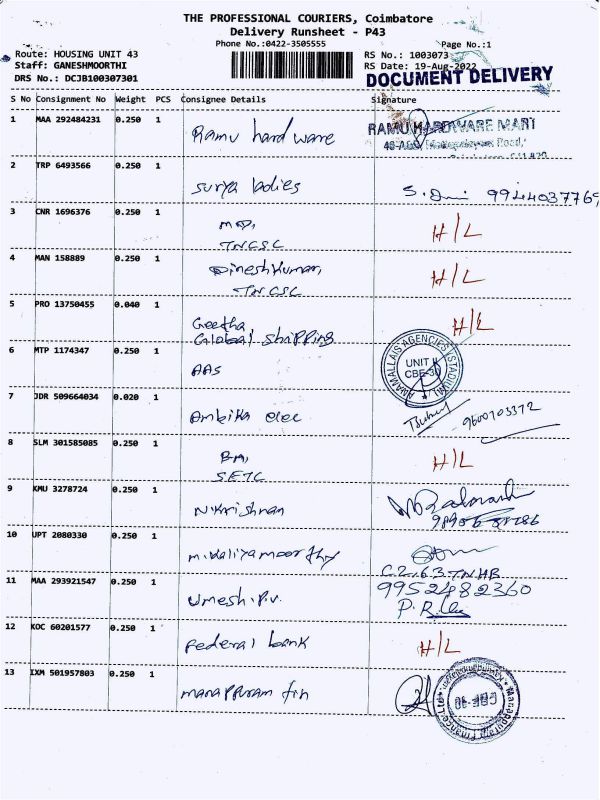 THE PROFESSIONAL COURIERS, Coimbatore
Delivery Runsheet - P43
Phone No.:0422-3505555
Page No.:1
Route: HOUSING UNIT 43
RS No.: 1003073
Staff: GANESHMOORTHI
RS Date: 19-Aug-2022
DRS No.: DCJB100307301
DOCUMENT DELIVERY
S No Consignment No Weight PCS Consignee Details Signature
1 MAA 292484231 0.250 1 Ramu hardware RAMU HARDWARE MART
2 TRP 6493566 0.250 1 Surya ladies 9944037769
3 CNR 1696376 0.250 1 MD, H/L
TNCSC
4 MAN 158889 0.250 1 Dineshkumar, H/L
TNCSC
5 PRO 13750455 0.040 1 Geetha H/L
Global Shipping
6 MTP 1174347 0.250 1 AAS ANAMALLAIS AGENCIES (STADIUM)
UNIT II
CBE-30
7 JDR 509664034 0.020 1 Ambika elec
8 SLM 301585085 0.250 1 BM, H/L
SETC
9 KMU 3278724 0.250 1 N.Krishnan
10 UPT 2080330 0.250 1 M.Kaliyamoorthy
C2.63.TNHB
11 MAA 293921547 0.250 1 Umesh.P.V. 9952482360
12 KOC 60201577 0.250 1 Federal bank H/L
13 IXM 501957803 0.250 1 manappuram fin